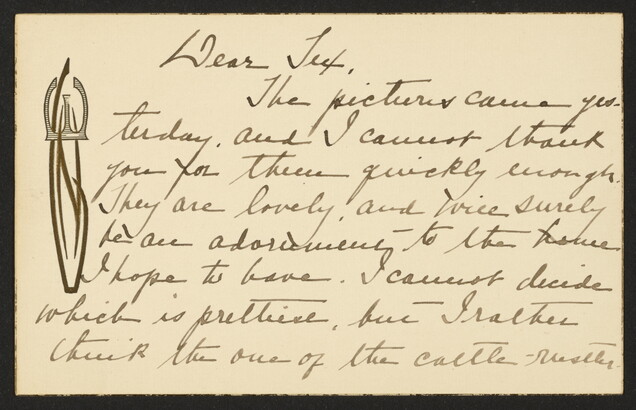 Dear Tex,
The pictures came yes-
terday, and I cannot thank
you for them quickly enough.
They are lovely, and will surely
be an adornment to the home
I hope to have. I cannot decide
which is prettiest, but I rather
think the one of the cattle-rustler